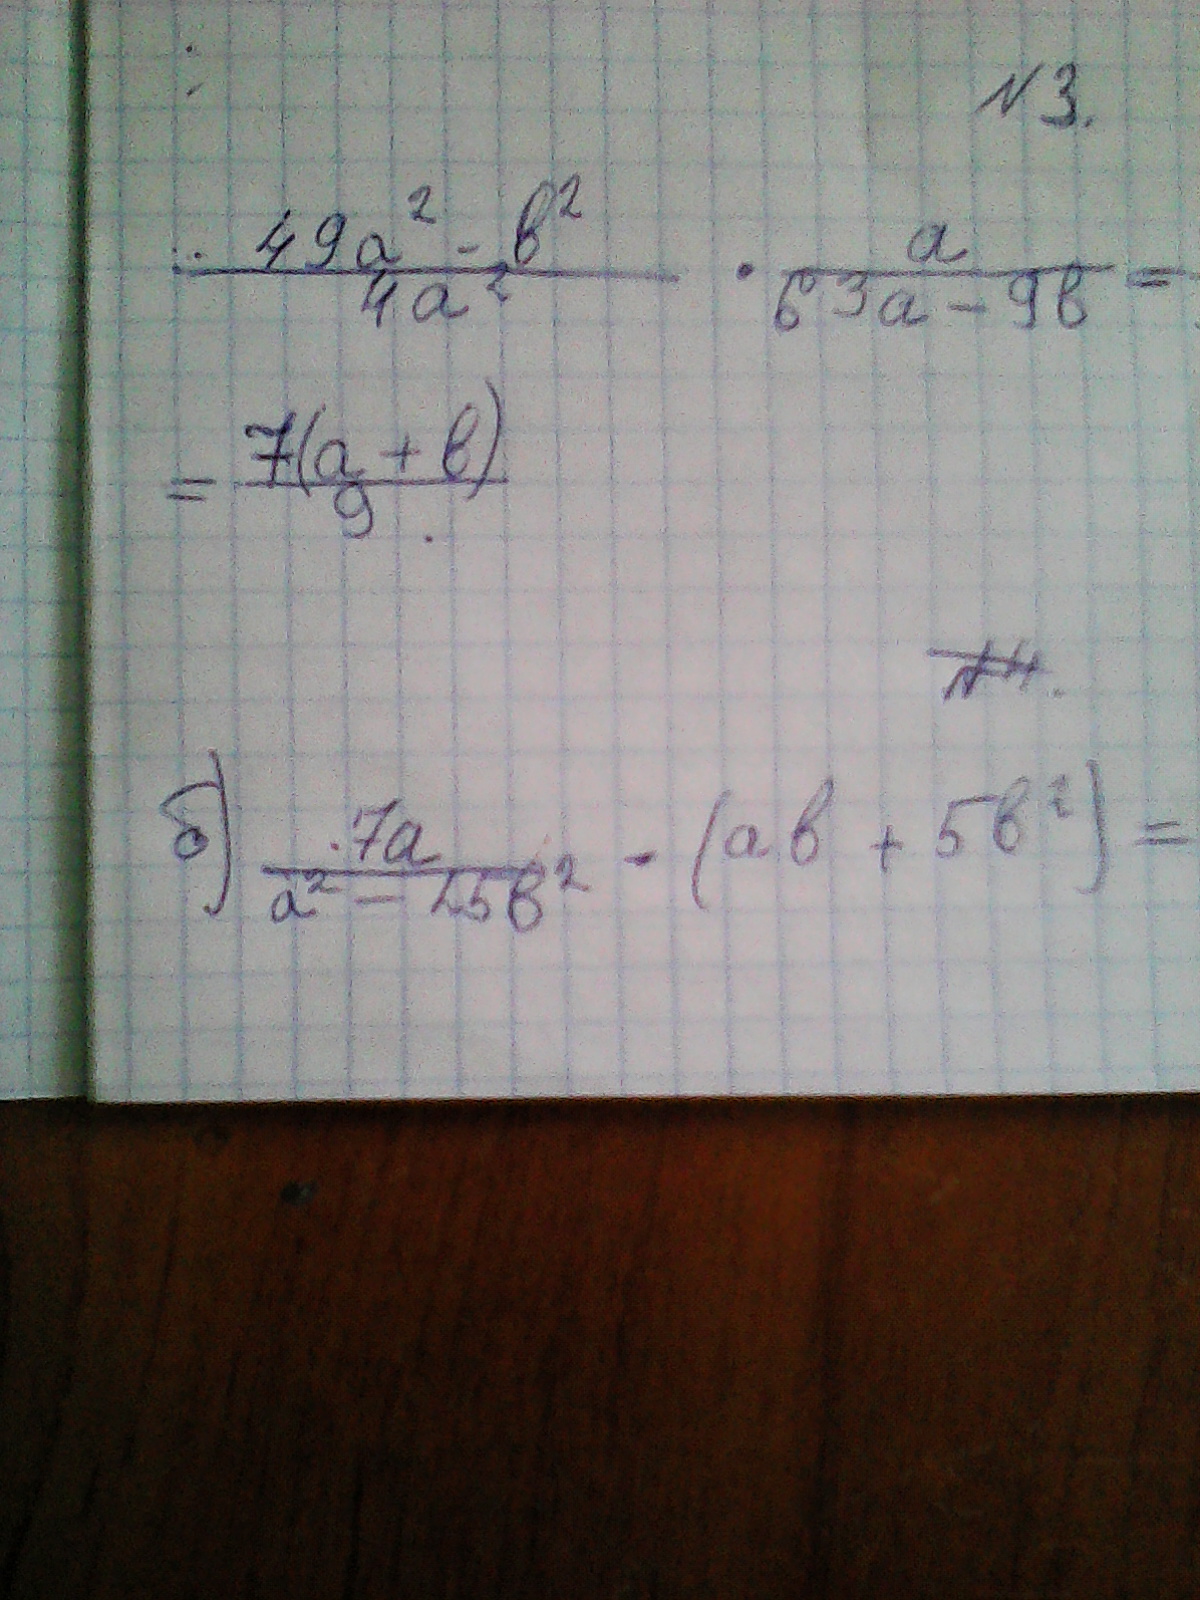 №3.
49a² - b²/4a² · a/63a - 9b =
= 7(a + b)/9.
№4.
б) 7a/a² - 25b² · (ab + 5b²) =